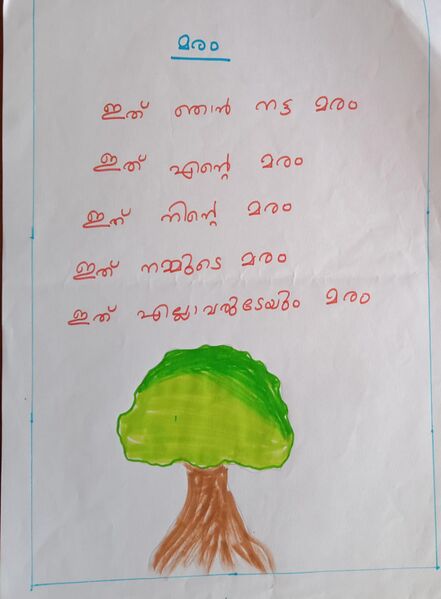 മരം
ഇത് ഞാൻ നട്ട മരം
ഇത് എന്റെ മരം
ഇത് നിന്റെ മരം
ഇത് നമ്മുടെ മരം
ഇത് എല്ലാവരുടേയും മരം